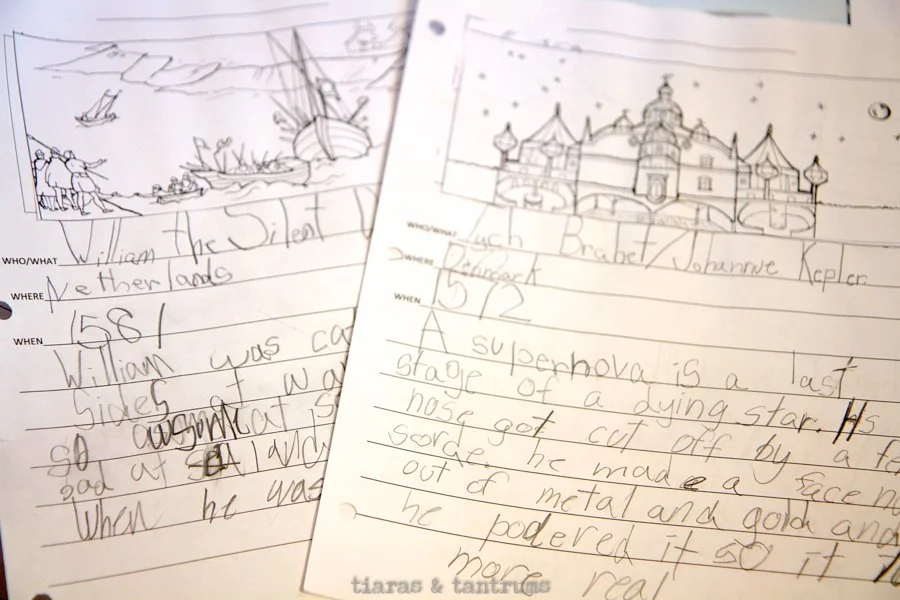 WHO/WHAT William the Silent
WHERE Netherlands
WHEN 1581
William was
Sides at
so awsome at
bad at land
When he was
WHO/WHAT Tuch Brahet/Johannue Kepler
WHERE Denmark
WHEN 1572
A supernova is a last
stage of a dying star. His
nose got cut off by a
scorde. he made a face
out of metal and gold and
he podered it so it
more real
tiaras & tantrums